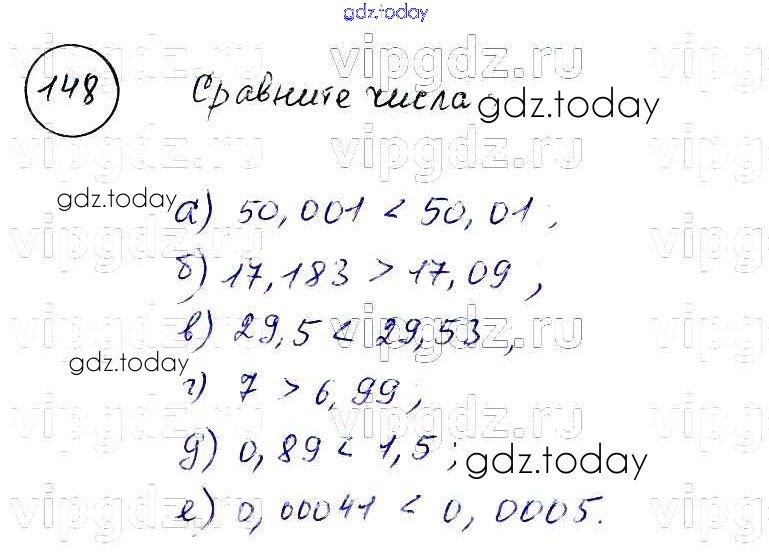 gdz.today
148 Сравните числа gdz.today
vipgdz.ru vipgdz.ru
gdz.today
а) 50,001 < 50,01;
б) 17,183 > 17,09;
в) 29,5 < 29,53,
gdz.today
г) 7 > 6,99;
д) 0,89 < 1,5; gdz.today
е) 0,00041 < 0,0005.
vipgdz.ru vipgdz.ru